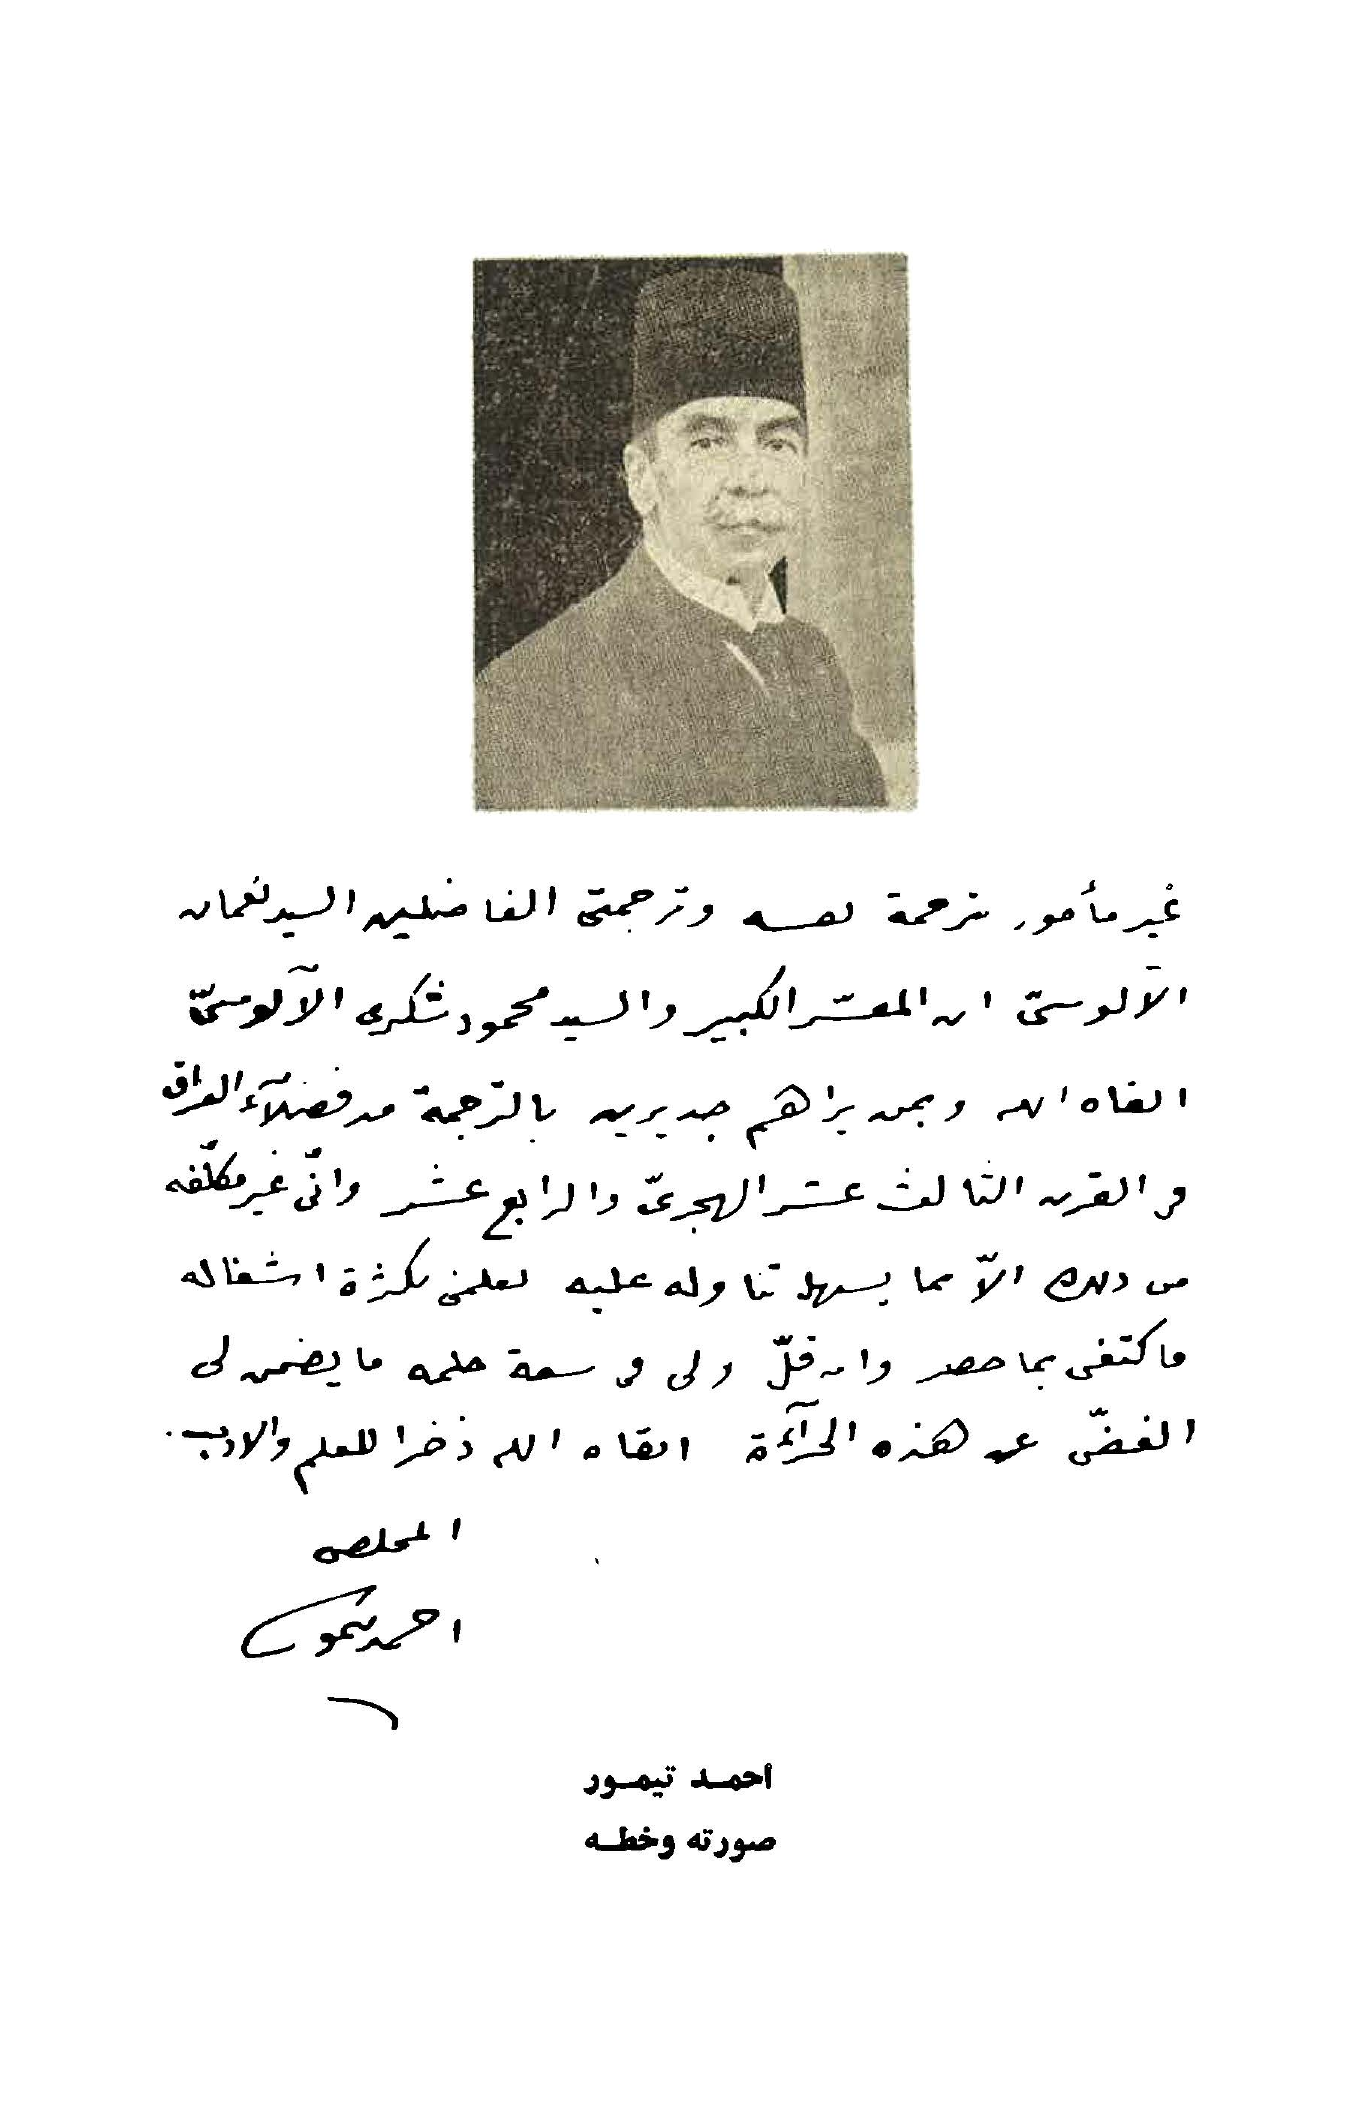 غير مأمور بترجمة نفسه وترجمتى الفاضلين السيد نعمان
الآلوسىّ ابن المفسّر الكبير والسيد محمود شكرى الآلوسىّ
ابقاه الله وبمن يراهم جديرين بالترجمة من فضلآء العراق
فى القرن الثالث عشر الهجرىّ والرابع عشر وانّى غير مكلّفه
من ذلك الاّ بما يسهل تناوله عليه لعلمى بكثرة اشغاله
فاكتفى بما حضر وان قلّ ولى فى سعة حلمه ما يضمن لى
الغضّ عن هذه الجرآءة ابقاه الله ذخرا للعلم والادب.
المخلص
احمد تيمور
أحمـد تيمـور
صورته وخطـه